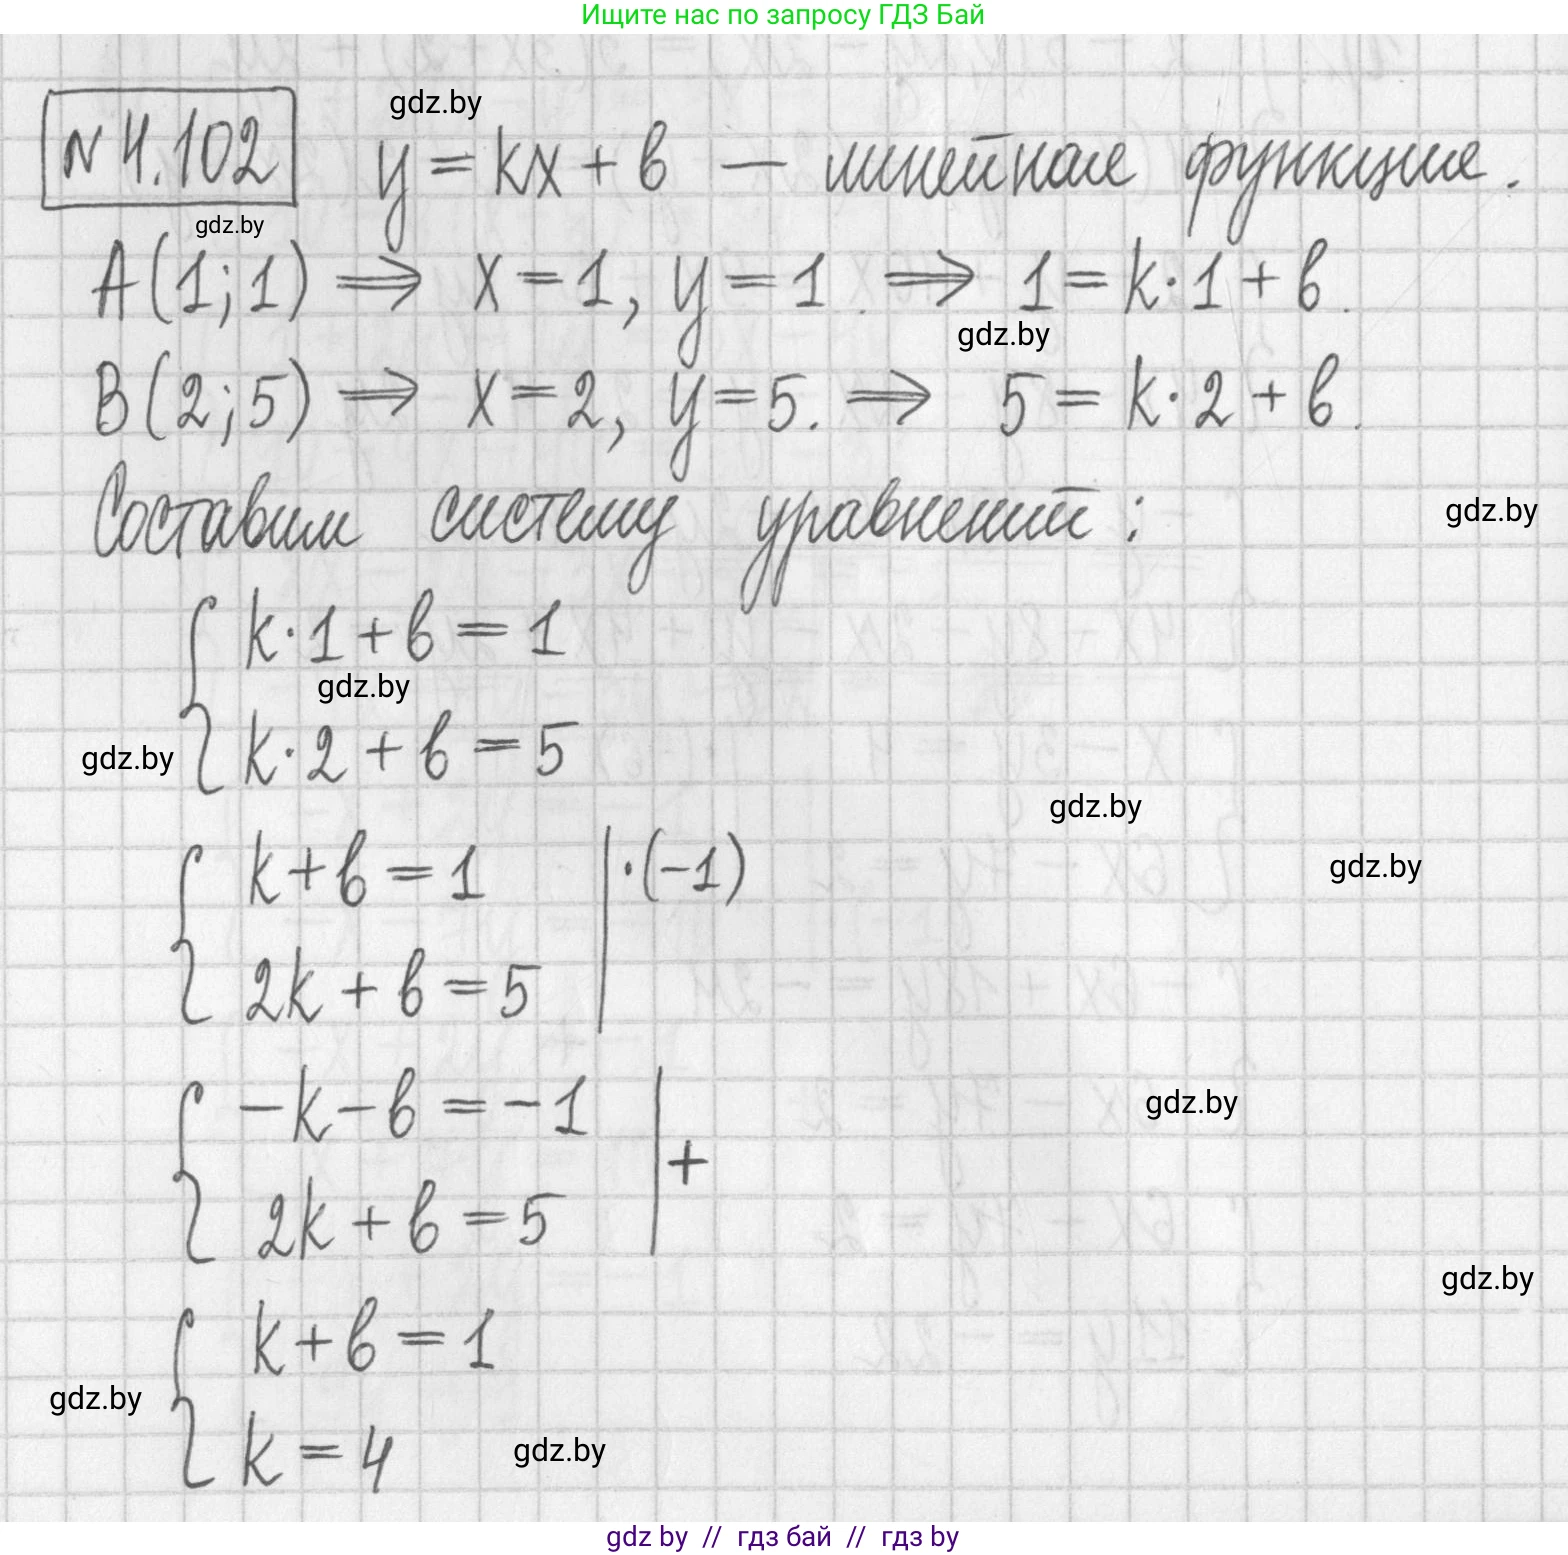 Ищите нас по запросу ГДЗ Бай
gdz.by
№ 4.102 y = kx + b — линейная функция.
gdz.by
A(1; 1) ⟹ x = 1, y = 1. ⟹ 1 = k · 1 + b.
gdz.by
B(2; 5) ⟹ x = 2, y = 5. ⟹ 5 = k · 2 + b.
Составим систему уравнений:
gdz.by
{ k · 1 + b = 1
gdz.by
k · 2 + b = 5
gdz.by
gdz.by
{ k + b = 1 | · (−1)
gdz.by
2k + b = 5
{ −k − b = −1 | +
gdz.by
2k + b = 5
gdz.by
{ k + b = 1
gdz.by
k = 4
gdz.by
gdz by // гдз бай // гдз by